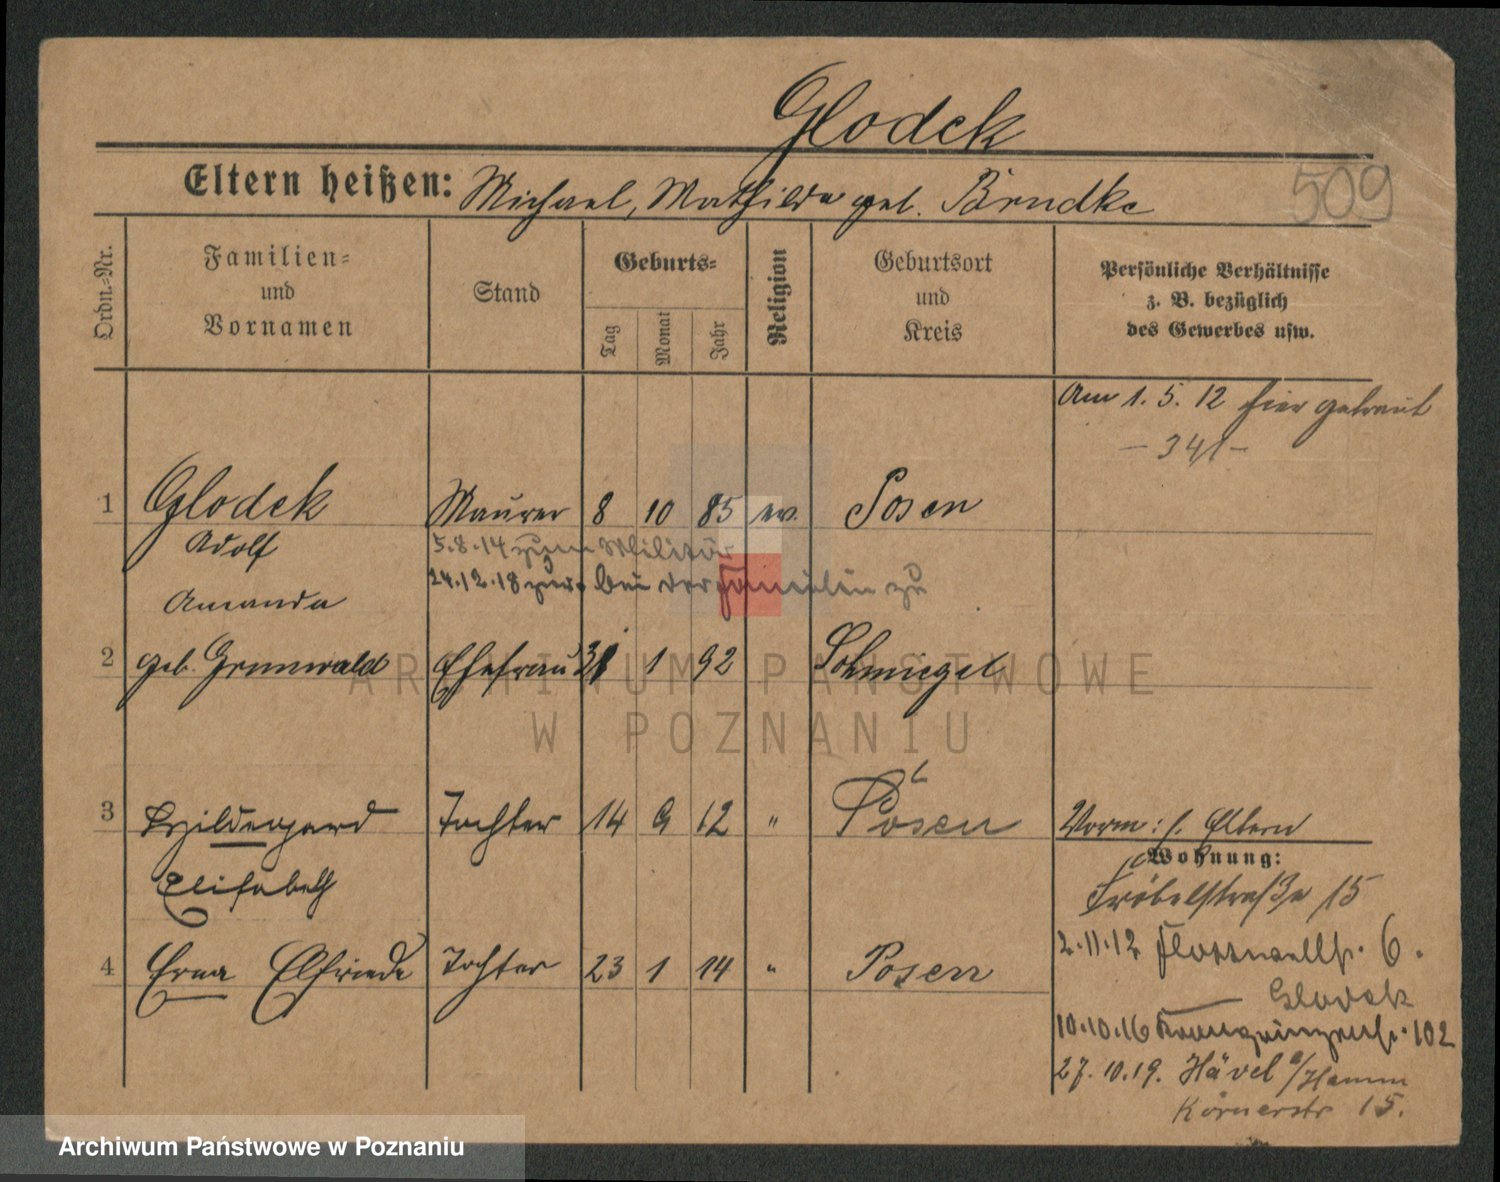 Glodek
Eltern heißen: Michael, Mathilde geb. Brudke
509
Ordn.-Nr.
Familien-
und
Vornamen
Stand
Geburts-
Tag
Monat
Jahr
Religion
Geburtsort
und
Kreis
Persönliche Verhältnisse
z. B. bezüglich
des Gewerbes usw.
Am 1. 5. 12 hier getraut
- 341 -
1 Glodek Maurer 8 10 85 ev. Posen
Adolf 5.8.14 zum Militär
24.12.18 zur. bei der Familie zu
Amanda
2 geb. Grunwald Ehefrau 31 1 92 Schmiegel
ARCHIWUM PAŃSTWOWE
W POZNANIU
3 Hildegard Tochter 14 9 12 " Posen
Elisabeth
4 Erna Elfriede Tochter 23 1 14 " Posen
Vorm: s. Eltern
Wohnung:
Fröbelstraße 15
2.11.12 Flottwellstr. 6.
Glodek
10.10.16 Kronprinzenstr. 102
27. 10. 19. Hävel a/Hamm
Körnerstr 15.
Archiwum Państwowe w Poznaniu